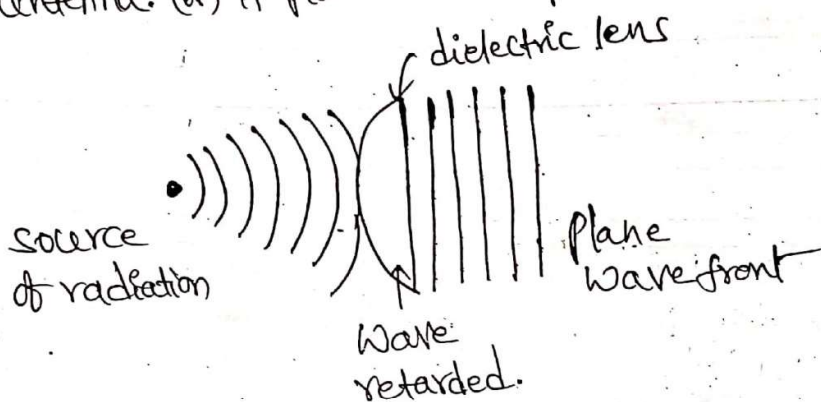 antenna. (a) A
dielectric lens
source
of radiation
Plane
wavefront
Wave
retarded.